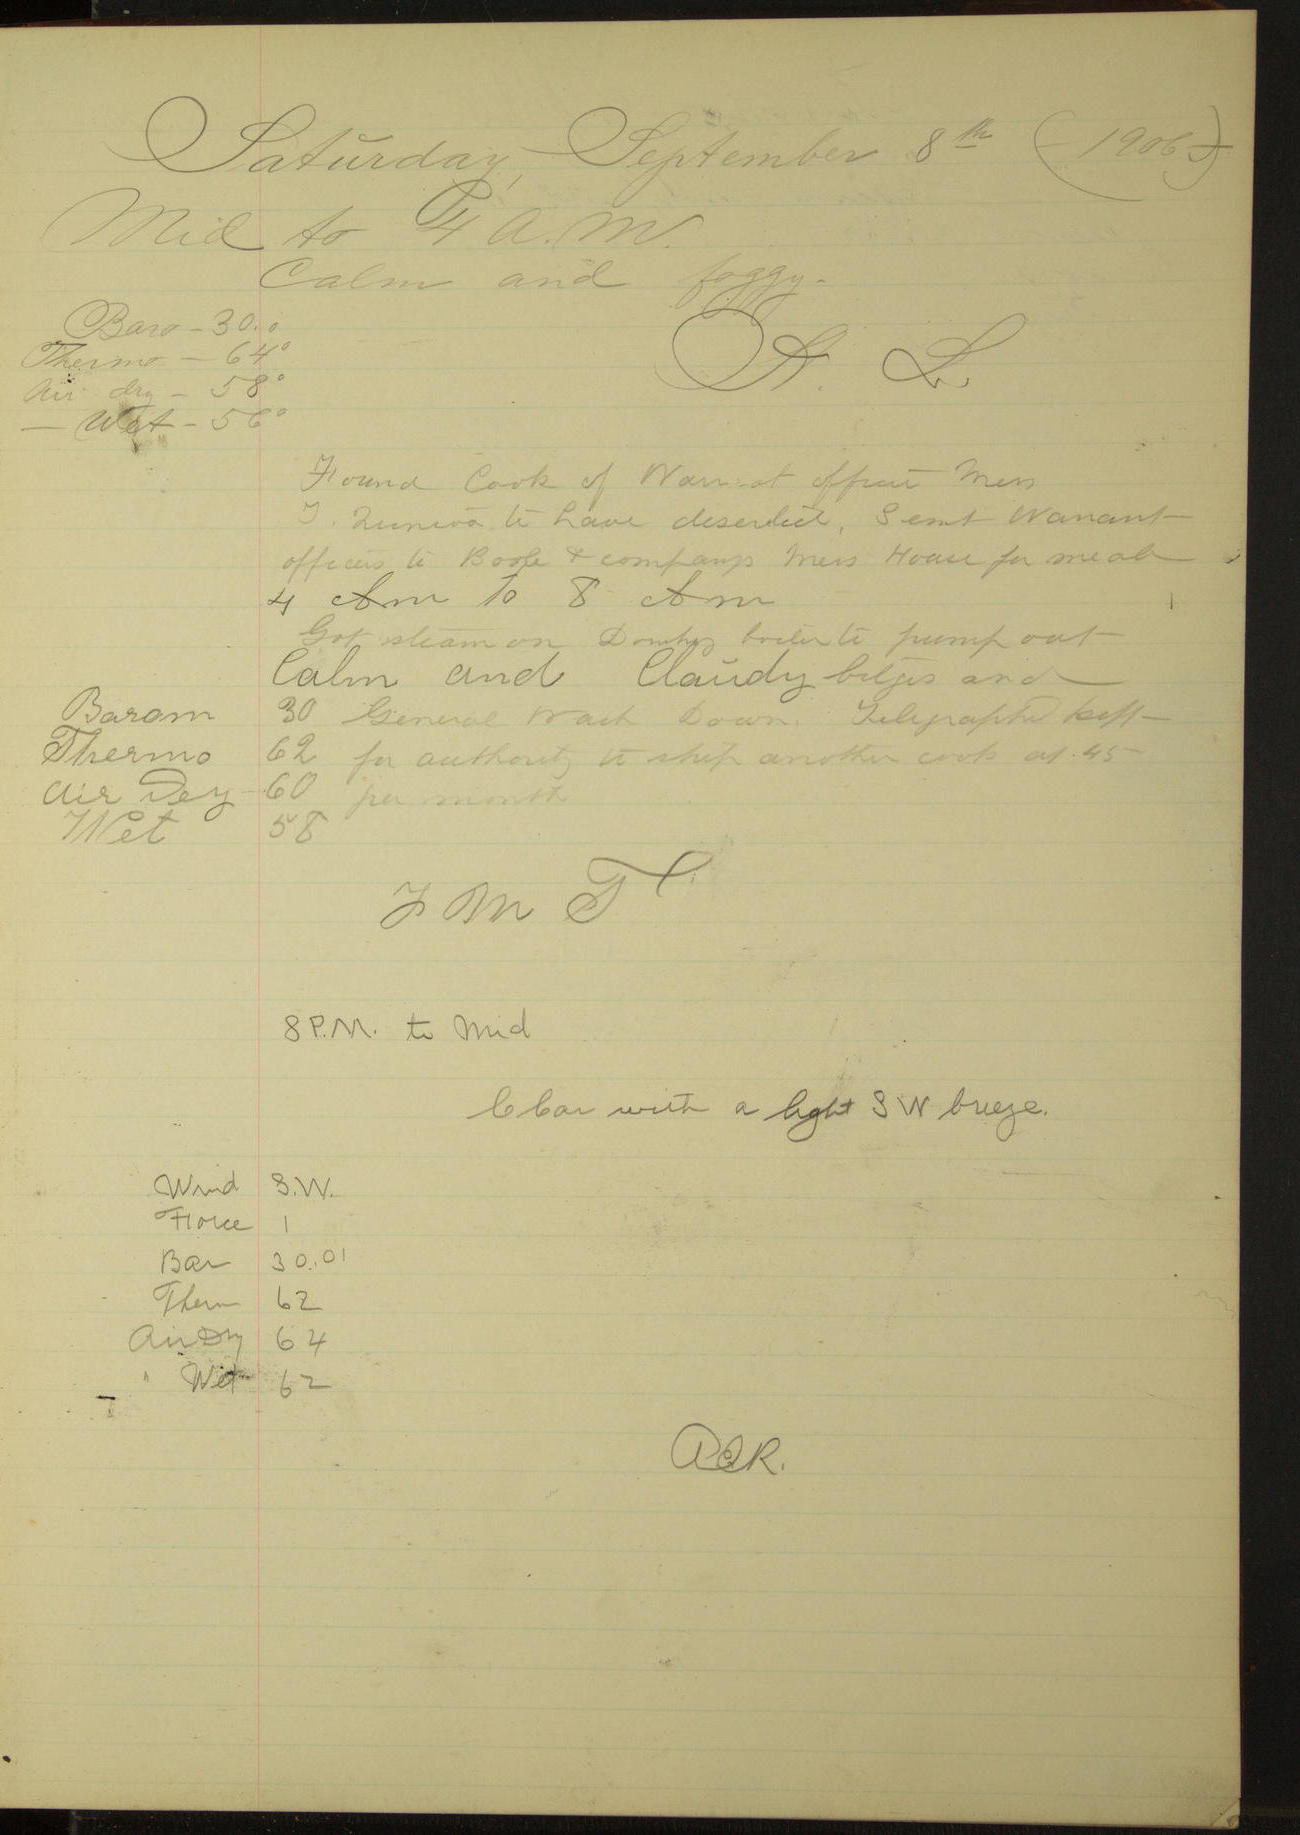 Saturday, September 8th (1906)
Mid to 4 A.M.
Calm and foggy.
Baro - 30.0
Thermo - 64°
Air dry - 58°
— Wet - 56°
A. L.
Found Cook of Warrant officers Mess
to have deserted, Sent Warrant
officers to & companys Mess House for meals
4 Am to 8 Am
Got steam on Donkey boiler to pump out
Calm and Claudy bilges and
Barom 30 General Wash Down. Telegraphed Dept
Thermo 62 for authority to ship another cook at 45
Air Dry - 60 per month
Wet 58
J M T
8 P.M. to Mid
Clear with a light S W breeze.
Wind S.W.
Force 1
Bar 30.01
Ther 62
Air Dry 64
" Wet 62
R.